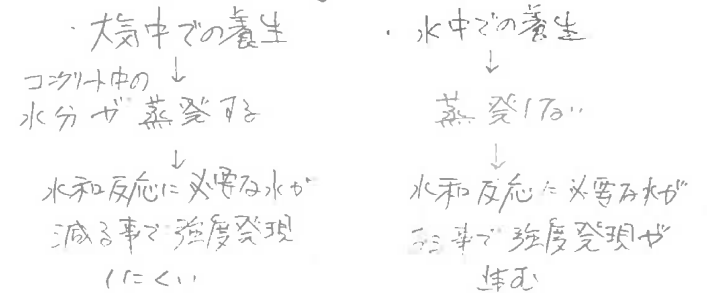 ・大気中での養生
コンクリート中の
水分が蒸発する
水和反応に必要な水が
減る事で強度発現
しにくい
・水中での養生
蒸発しない
水和反応に必要な水が
事で強度発現が
進む